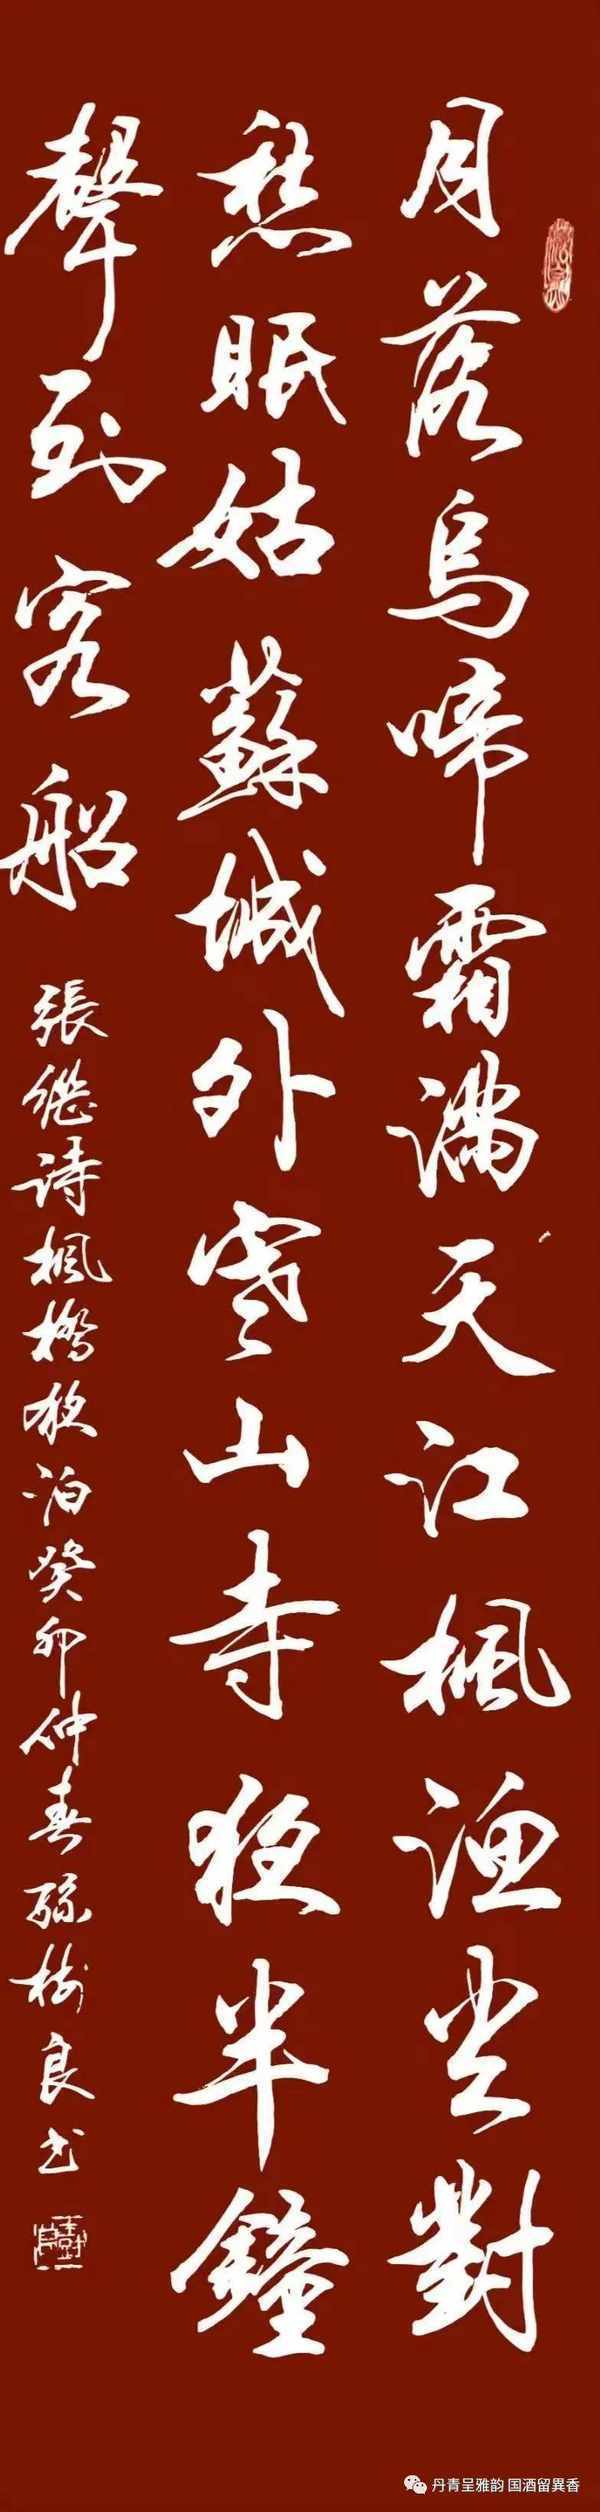 月落烏啼霜满天江楓渔火對
愁眠姑蘇城外寒山寺夜半鐘
聲到客船
張继诗楓橋夜泊癸卯仲春孫樹良书
丹青呈雅韵 国酒留異香